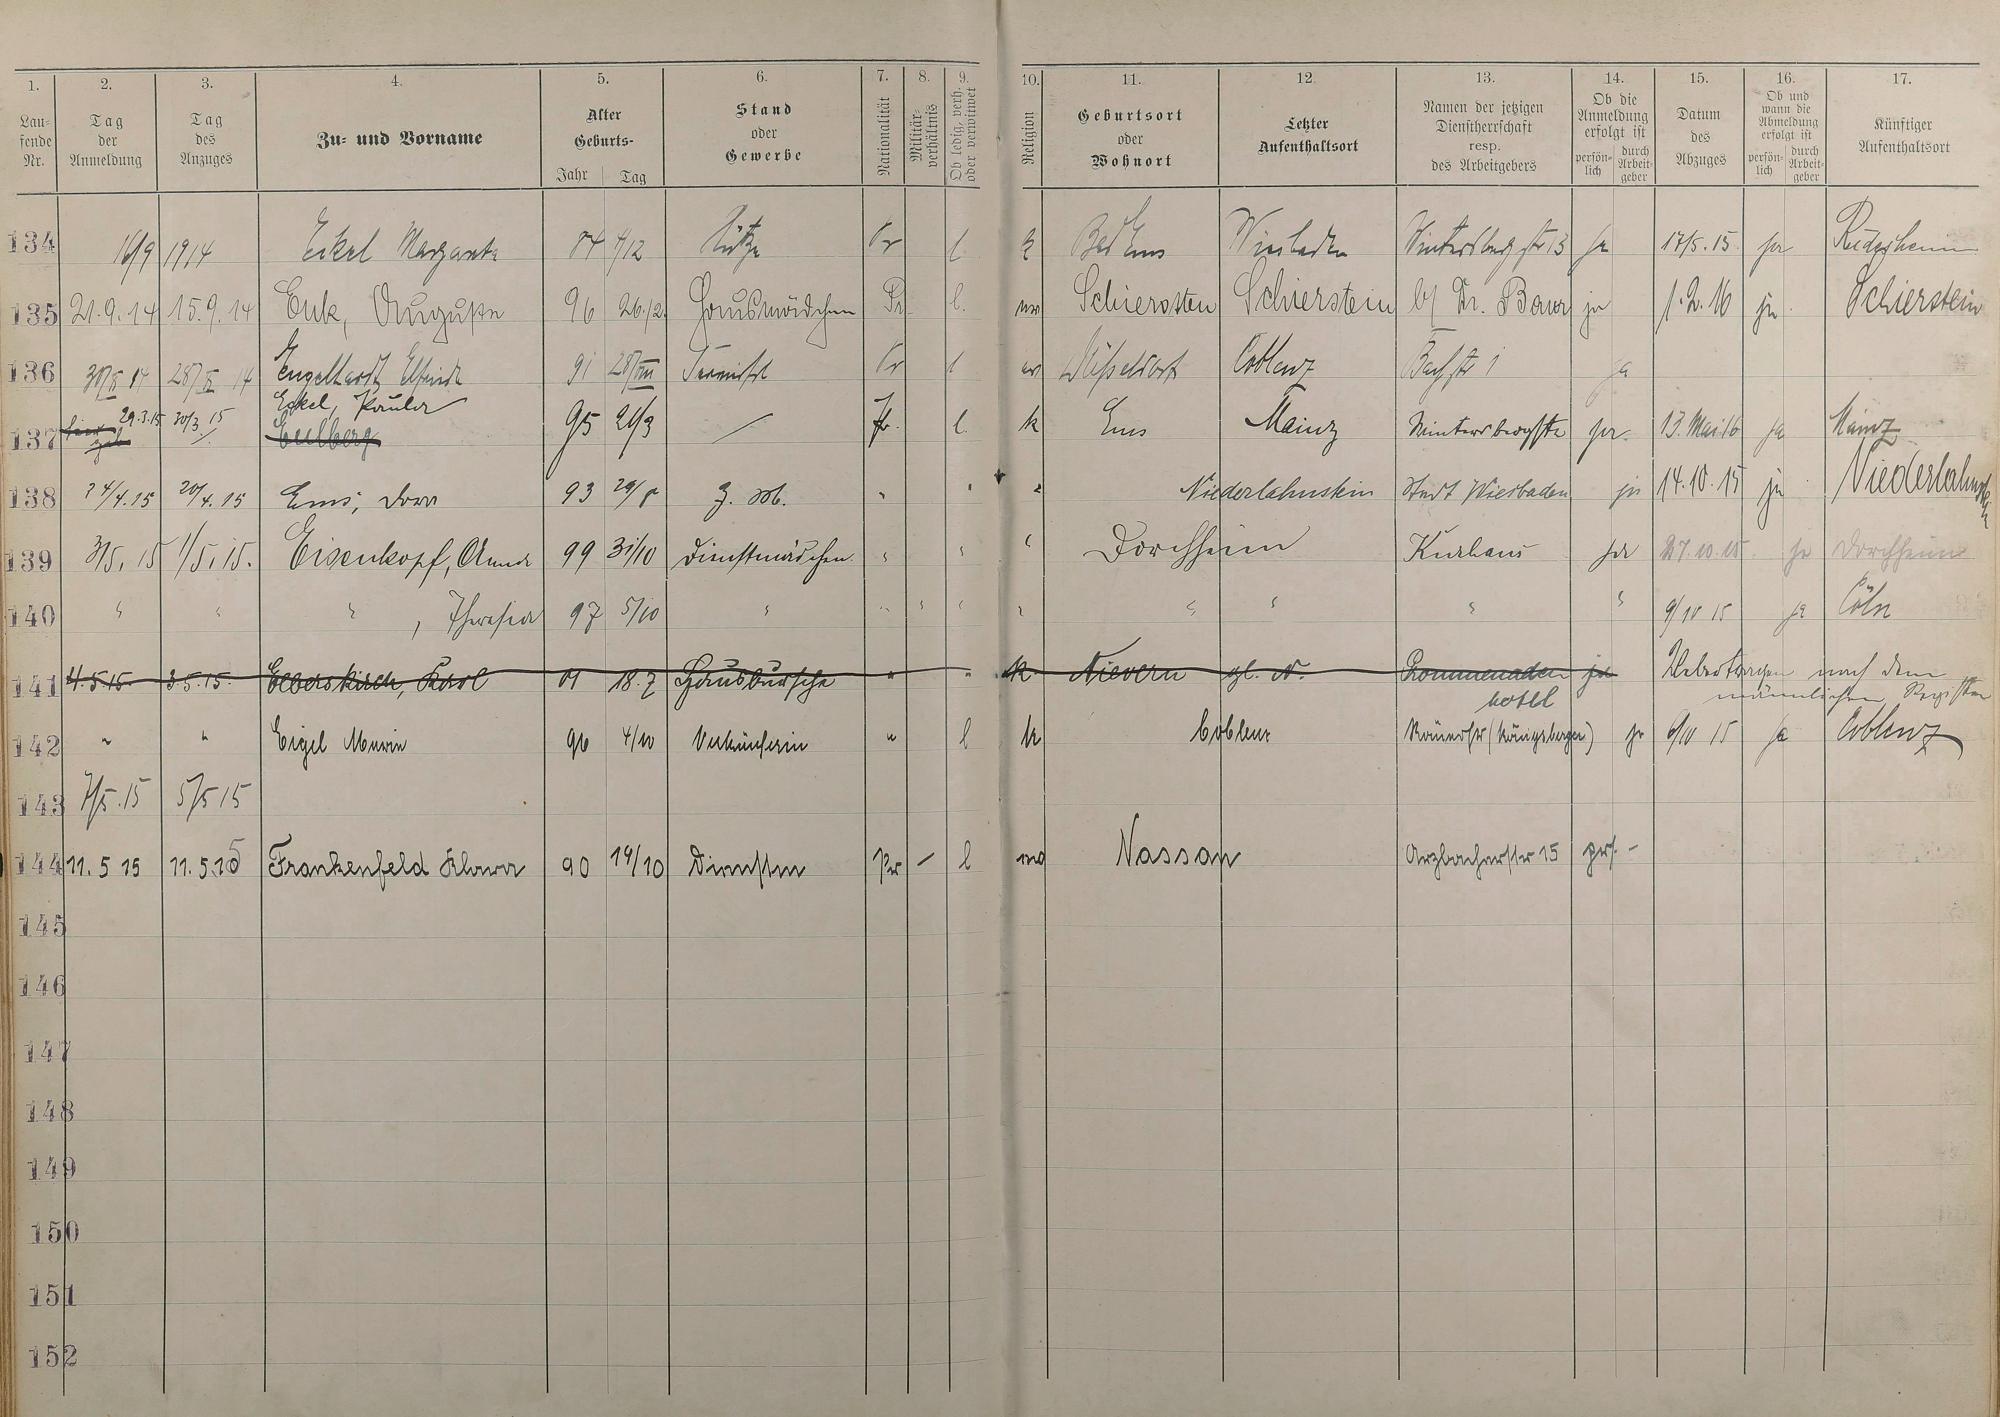 1. 2. 3. 4. 5. 6. 7. 8. 9. 10. 11. 12. 13. 14. 15. 16. 17.
Laufende Nr.
Tag der Anmeldung
Tag des Anzuges
Zu- und Vorname
Alter Geburts-
Jahr Tag
Stand oder Gewerbe
Nationalität
Militär-verhältnis
Ob ledig, verh. oder verwitwet
Religion
Geburtsort oder Wohnort
Letzter Aufenthaltsort
Namen der jetzigen Dienstherrschaft resp. des Arbeitgebers
Ob die Anmeldung erfolgt ist
persönlich durch Arbeitgeber
Datum des Abzuges
Ob und wann die Abmeldung erfolgt ist
persönlich durch Arbeitgeber
Künftiger Aufenthaltsort
134 16/9 1914 Eckel Margarete 84 4/12 Stütze Pr l. k Bad Ems Wiesbaden Wintersbergstr 13 ja 17/5.15 ja Rüdesheim
135 21.9.14 15.9.14 Enk, Auguste 96 26./2. Hausmädchen Pr. l. Schierstein Schierstein b/ Dr. Baur ja 1.2.16 ja Schierstein
136 14 28/IX 14 Engelhardt 91 28/VIII Pr l ev Düsseldorf Coblenz Bachstr 1 ja
Eckel, Paula
137 29.3.15 30/3 15 Eulberg 95 21/3 / Pr. l. k Ems Mainz Wintersbergstr ja 13. Mai 16 ja Mainz
138 24/4.15 20/4.15 Ems, Dora 93 29/8 Z. M. " " " Niederlahnstein Stadt Wiesbaden ja 14.10.15 ja Niederlahnstein
139 3/5.15 1/5.15. Eisenkopf, Anna 99 31/10 Dienstmädchen " " " Dorchheim Kurhaus ja 27.10.15 ja Dorchheim
140 " " " , Theresia 97 5/10 " " " " " " " " " 9/10 15 ja Cöln
141 4.5.15. 3.5.15. Elberskirch, Karl 01 18.7 Hausbursche " " k. Nievern gl. N. Promenaden ja Uebertragen nach dem
hotel männlichen Register
142 " " Eigel Maria 96 4/10 Verkäuferin " l k Coblenz Römerstr (Königsberger) ja 6/10 15 ja Coblenz
143 7/5.15 5/5 15
144 11. 5 15 11. 5. 15 Frankenfeld Klara 90 14/10 Pr – l Nassau Arzbacherstr 15 –
145
146
147
148
149
150
151
152